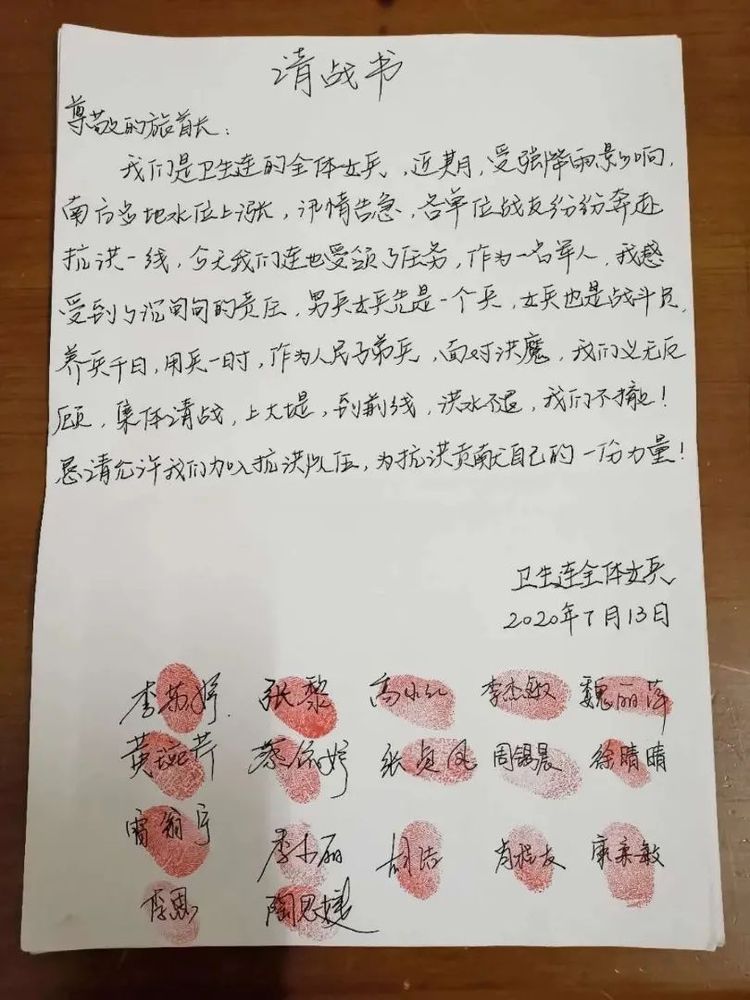 请战书
尊敬的旅首长：
我们是卫生连的全体女兵，近期，受强降雨影响，
南方多地水位上涨，汛情告急，各单位战友纷纷奔赴
抗洪一线，今天我们连也受领了任务，作为一名军人，我感
受到了沉甸甸的责任，男兵女兵先是一个兵，女兵也是战斗员，
养兵千日，用兵一时，作为人民子弟兵，面对洪魔，我们义无反
顾，集体请战，上大堤，到前线，洪水不退，我们不撤！
恳请允许我们加入抗洪队伍，为抗洪贡献自己的一份力量！
卫生连全体女兵
2020年7月13日
张黎 李杰敏 魏丽萍
黄琬芹 蔡依婷 张贞凤 周锡晨 徐晴晴
李小丽 胡洁 康亲敏
李思 陶思婕